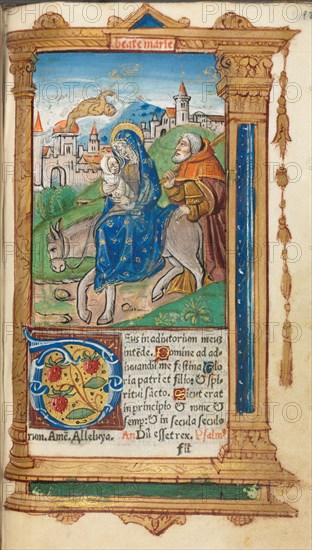 beate marie
Eus in adiutorium meuʒ
intēde. Domine ad ad
iuuandū me festina. Glo
ria patri et filio: & spi
ritui sācto. Sicut erat
in principio & nunc &
semp: & in secula seculo
rum. Amē. Alleluya. An Dū esset rex. Psalmꝰ